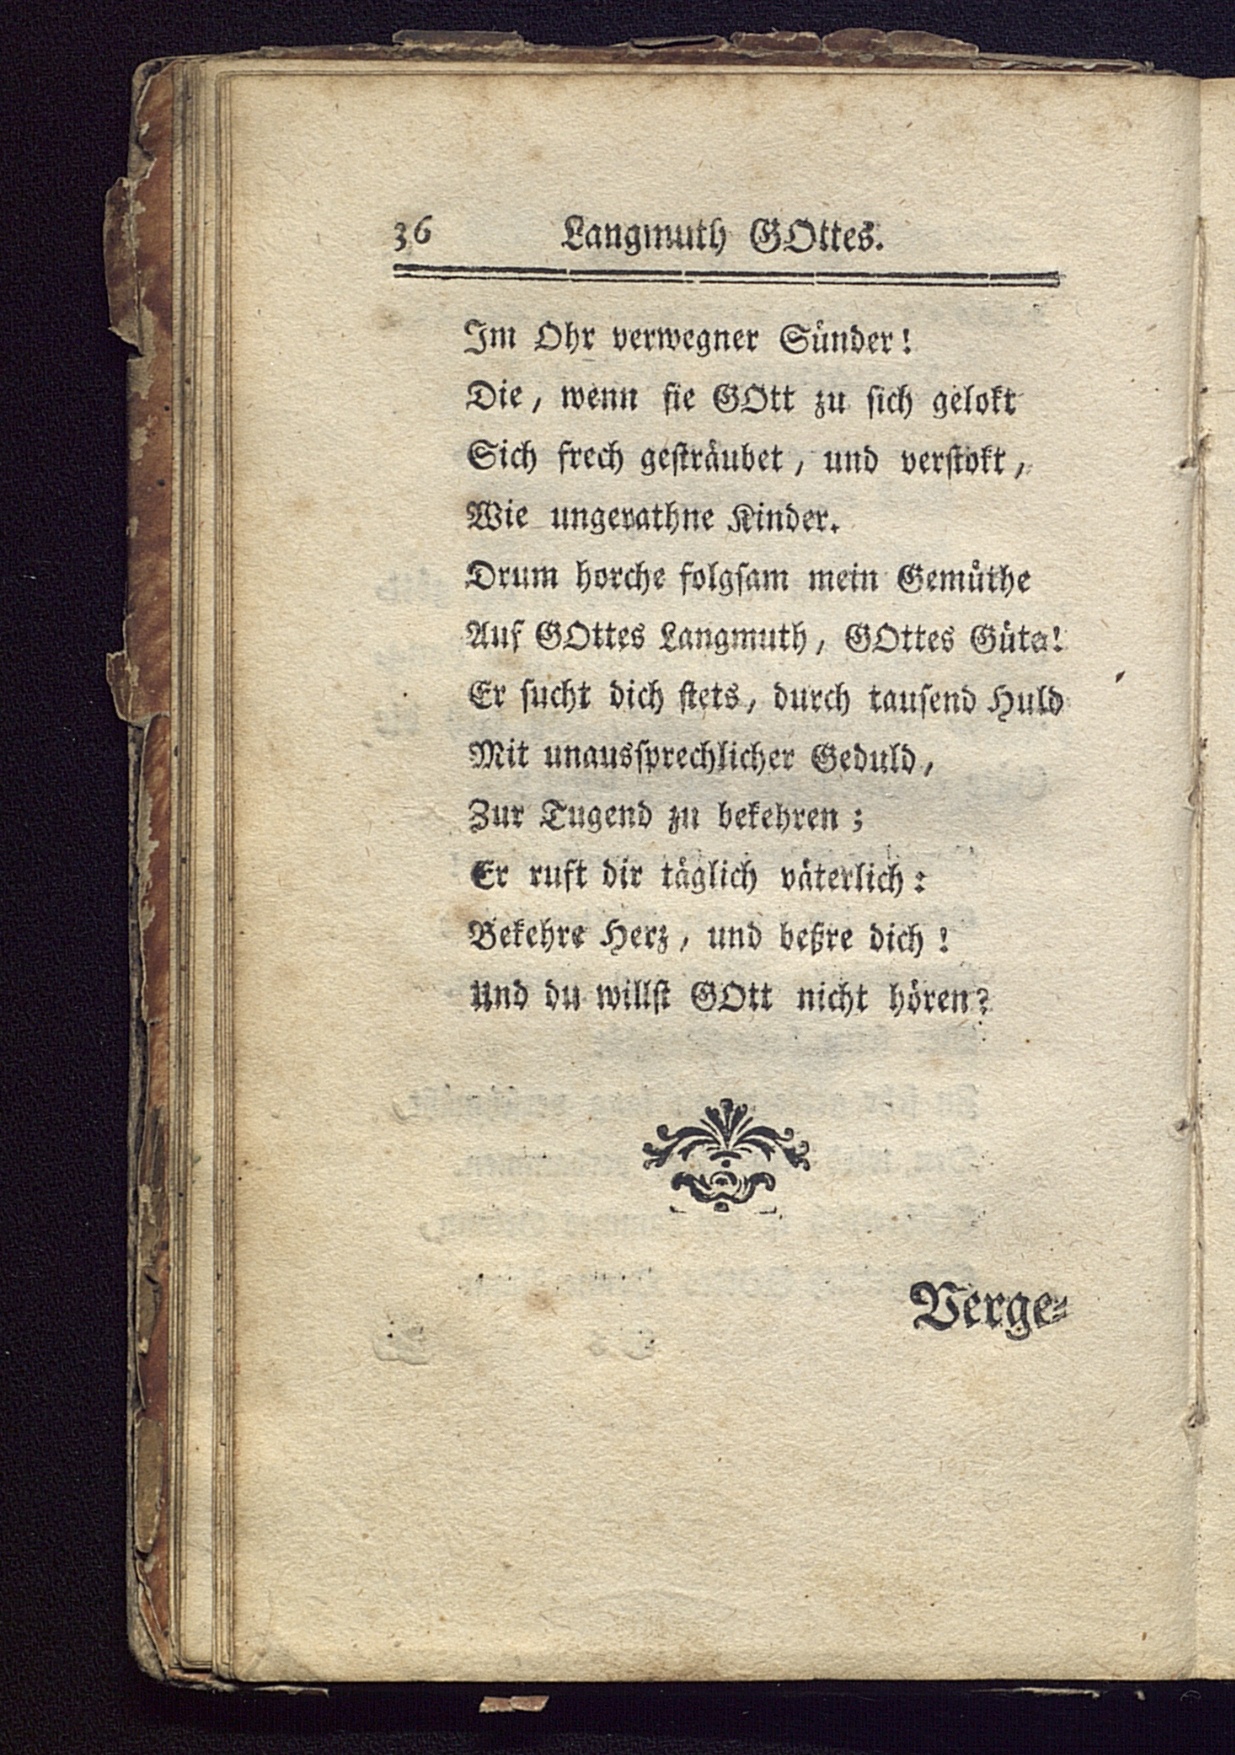 36 Langmuth GOttes.
Im Ohr verwegner Sünder!
Die, wenn sie GOtt zu sich gelokt
Sich frech gesträubet, und verstokt,
Wie ungerathne Kinder.
Drum horche folgsam mein Gemüthe
Auf GOttes Langmuth, GOttes Güte!
Er sucht dich stets, durch tausend Huld
Mit unaussprechlicher Geduld,
Zur Tugend zu bekehren;
Er ruft dir täglich väterlich:
Bekehre Herz, und beßre dich!
Und du willst GOtt nicht hören?
Verge-